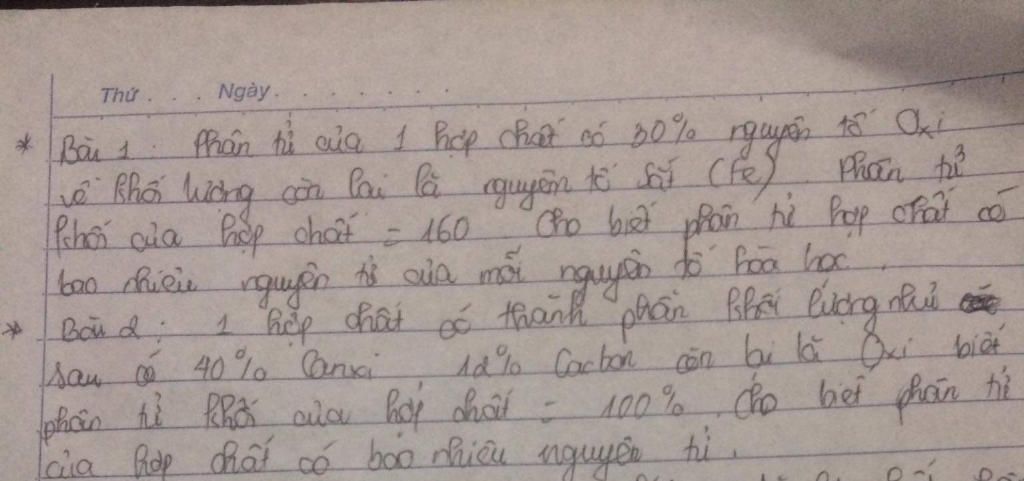 Thứ . . . Ngày . . . . . . . .
* Bài 1: Phân tử của 1 hợp chất có 30% nguyên tố Oxi
về khối lượng còn lại là nguyên tố sắt (Fe) Phân tử
khối của hợp chất = 160 Cho biết phân tử hợp chất có
bao nhiêu nguyên tử của mỗi nguyên tố hóa học.
* Bài 2: 1 hợp chất có thành phần khối lượng như
sau có 40% Canxi 12% Cacbon còn lại là Oxi biết
phân tử khối của hợp chất = 100% Cho biết phân tử
của hợp chất có bao nhiêu nguyên tử.